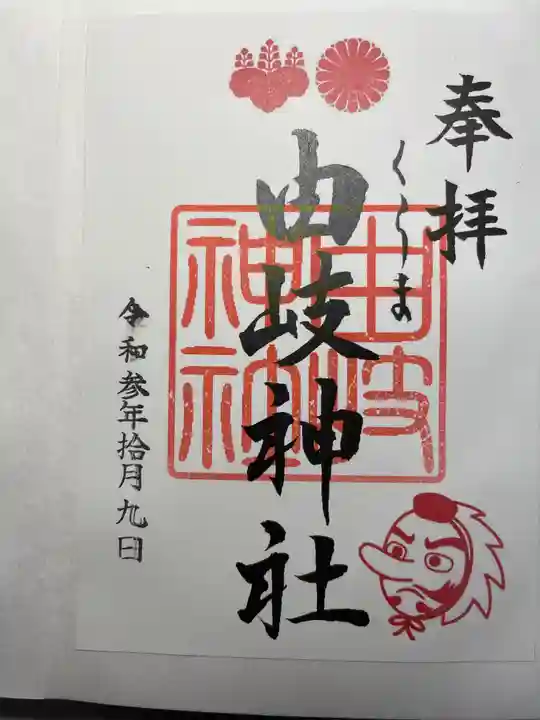 奉拝
くらま
由岐神社
由岐神社
令和参年拾月九日